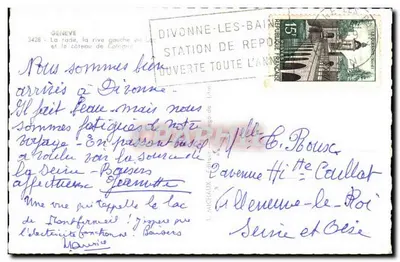 GENEVE
3428 - La rade, la rive gauche
et le côteau de Cologny
DIVONNE-LES-BAINS
STATION DE REPOS
OUVERTE TOUTE L'ANNÉE
15
Nous sommes bien
arrivés à Divonne.
Il fait beau mais nous
sommes fatigués de notre
voyage - En passant
la source de
la Seine - Baisers
affectueux Jeannette
Une vue qui rappelle le lac
de Montfermeil! J'espère que
l'électricité fonctionne. Baisers
Maurice
Melle C. Roux
2 avenue Hitte Caillat
Villeneuve-le-Roi
Seine et Oise